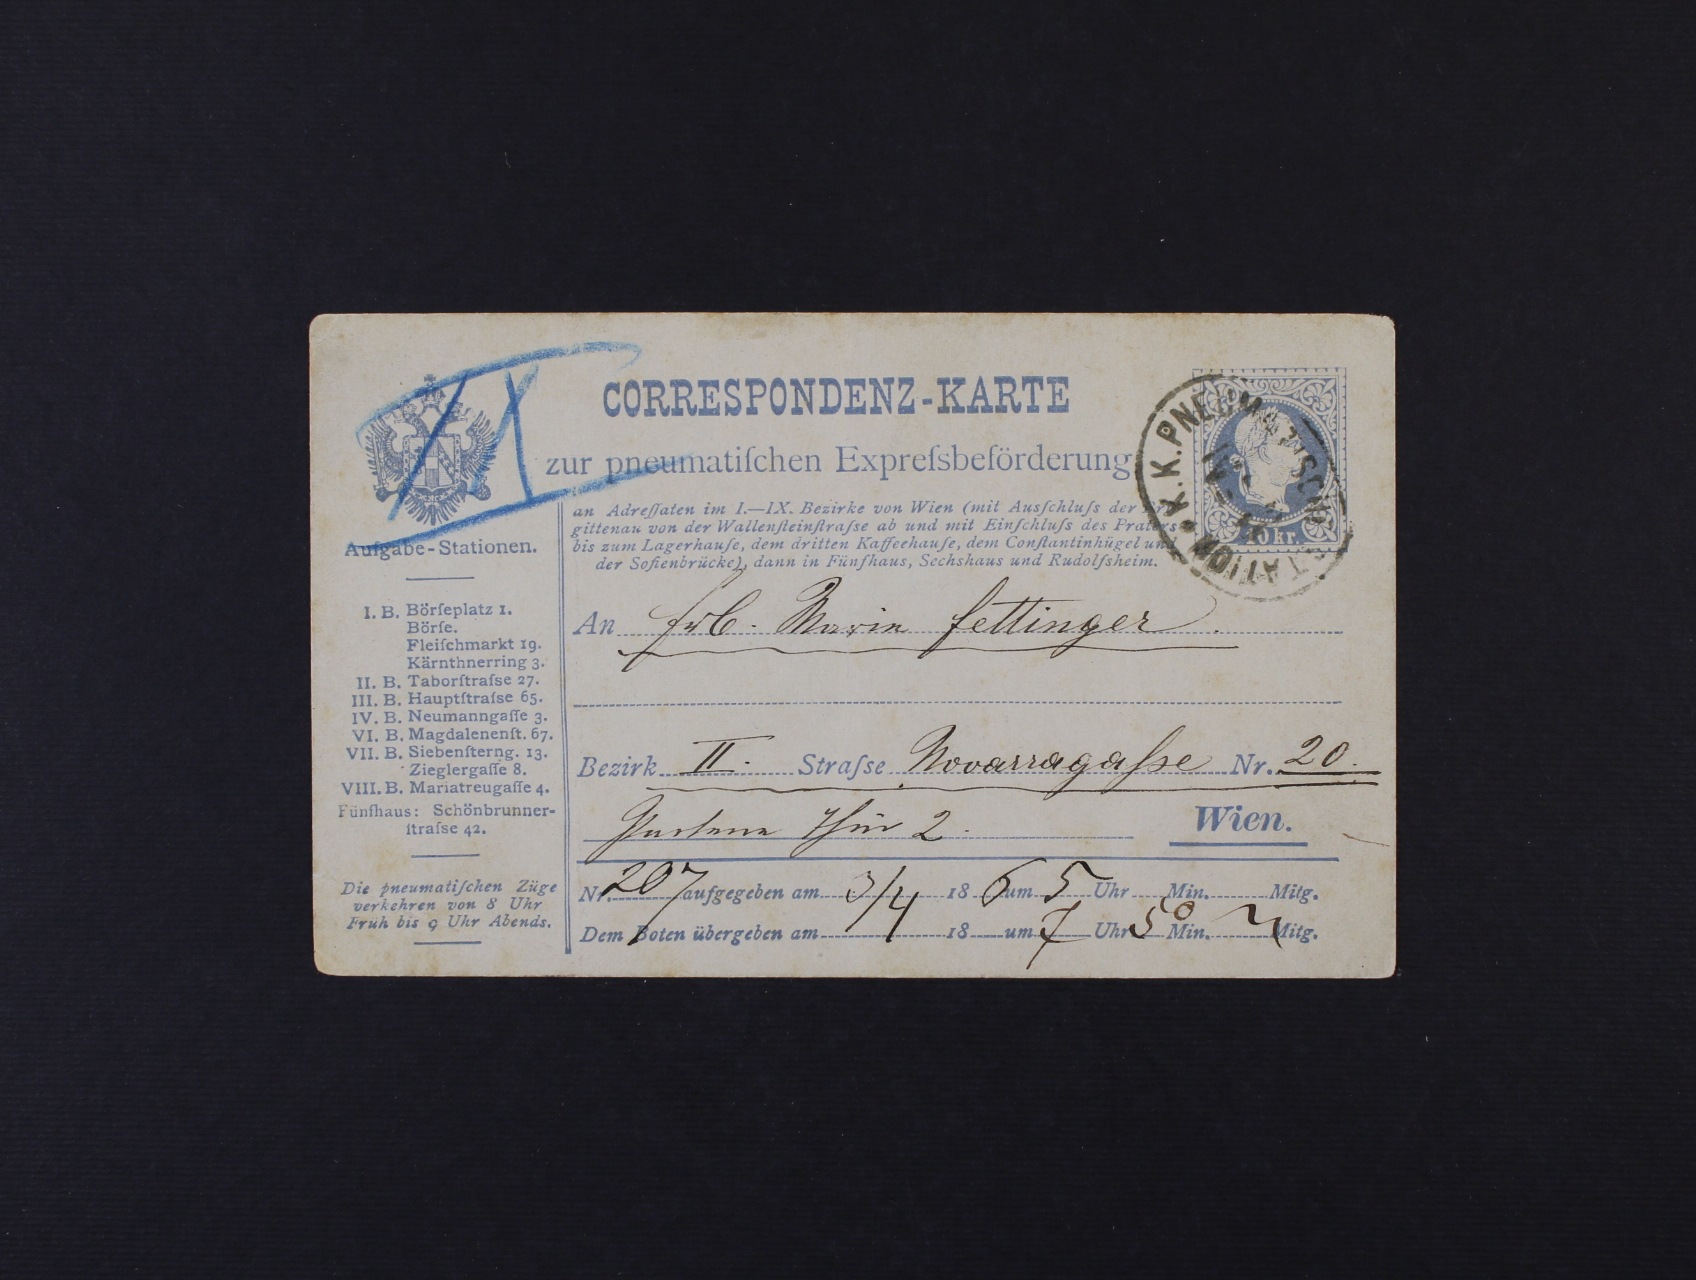 CORRESPONDENZ-KARTE
zur pneumatiſchen Expreſsbeförderung
an Adreſſaten im I.—IX. Bezirke von Wien (mit Ausſchluſs der Bri-
gittenau von der Wallenſteinſtraſse ab und mit Einſchluſs des Praters
bis zum Lagerhauſe, dem dritten Kaffeehauſe, dem Conſtantinhügel und
der Sofienbrücke), dann in Fünfhaus, Sechshaus und Rudolfsheim.
10 kr.
K.K.PNEUMATISCHE STATION
Aufgabe-Stationen.
I. B. Börſeplatz 1.
Börſe.
Fleiſchmarkt 19.
Kärnthnerring 3.
II. B. Taborſtraſse 27.
III. B. Hauptſtraſse 65.
IV. B. Neumanngaſſe 3.
VI. B. Magdalenenſt. 67.
VII. B. Siebenſterng. 13.
Zieglergaſſe 8.
VIII. B. Mariatreugaſſe 4.
Fünfhaus: Schönbrunner-
ſtraſse 42.
Die pneumatiſchen Züge
verkehren von 8 Uhr
Früh bis 9 Uhr Abends.
An Marie Fettinger
Bezirk II. Straſse Novarragaſse Nr. 20.
Thür 2.
Wien.
Nr. 207 aufgegeben am 3/4 18 6 um 5 Uhr Min. Mitg.
Dem Boten übergeben am 18 um 7 Uhr 50 Min. N Mitg.